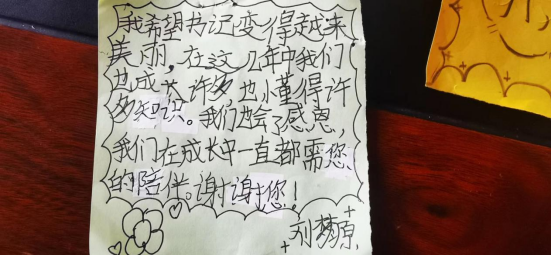 我希望书记变得越来
美丽，在这几年中我们
也成长许多也懂得许
多知识。我们也学会了感恩，
我们在成长中一直都需您
的陪伴。谢谢您！
刘梦原